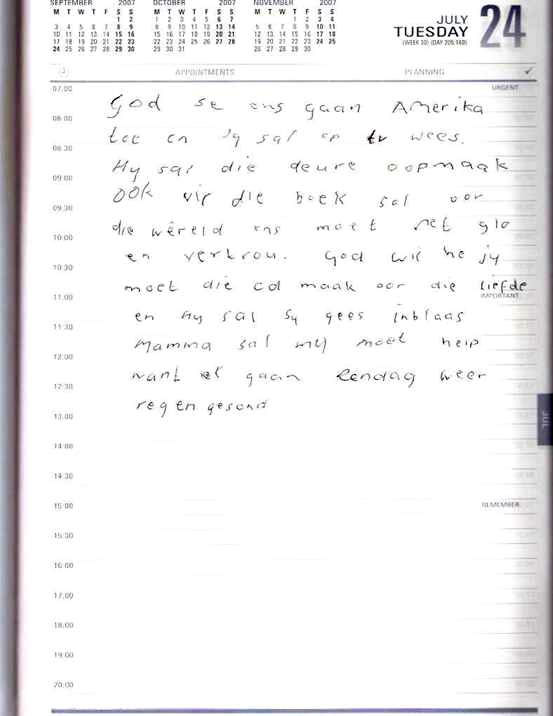 SEPTEMBER 2007 OCTOBER 2007 NOVEMBER 2007
M T W T F S S M T W T F S S M T W T F S S
1 2 1 2 3 4 5 6 7 1 2 3 4
3 4 5 6 7 8 9 8 9 10 11 12 13 14 5 6 7 8 9 10 11
10 11 12 13 14 15 16 15 16 17 18 19 20 21 12 13 14 15 16 17 18
17 18 19 20 21 22 23 22 23 24 25 26 27 28 19 20 21 22 23 24 25
24 25 26 27 28 29 30 29 30 31 26 27 28 29 30
JULY
TUESDAY 24
(WEEK 30) (DAY 205,160)
APPOINTMENTS PLANNING
07:00 URGENT
God se ons gaan Amerika
08:00
toe en Hy sal op tv wees.
08:30
Hy sal die deure oopmaak
09:00
Ook vir die boek sal oor
09:30
die wêreld ons moet net glo
10:00
en vertrou. God wil he jy
10:30
moet die cd maak oor die liefde
11:00 IMPORTANT
en Hy sal Sy gees inblaas
11:30
Mamma sal my moet help
12:00
want ek gaan Eendag weer
12:30
reg en gesond
13:00
JUL
14:00
14:30
15:00 REMEMBER
15:30
16:00
17:00
18:00
19:00
20:00